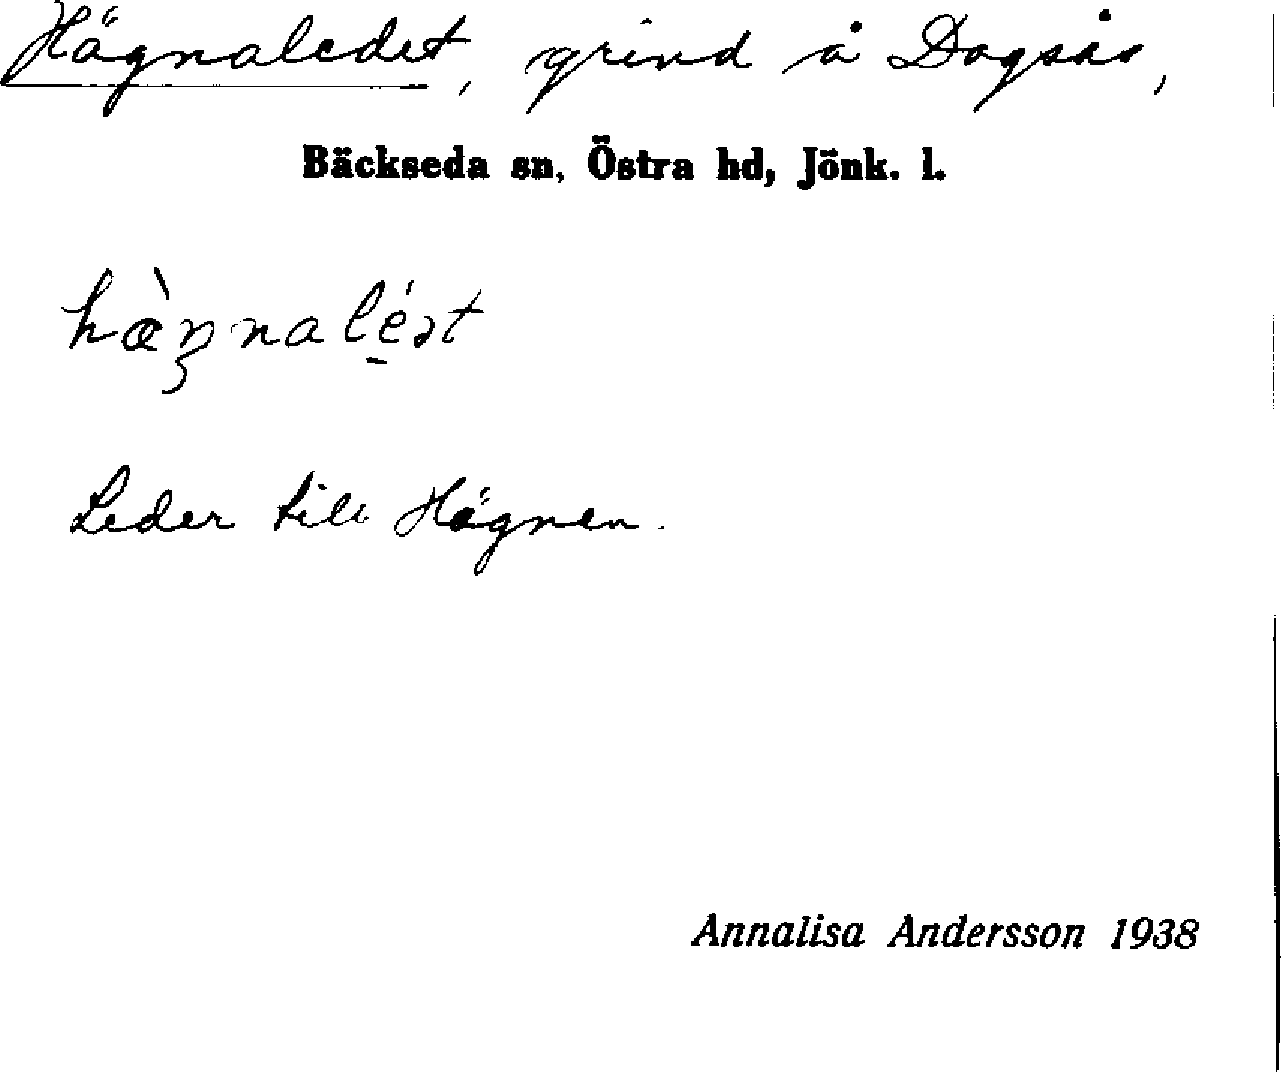 Hägnaledet, grind å Dagsås,
Bäckseda sn, Östra hd, Jönk. l.
hæ̀ŋnalé̠ət
Leder till Hägnen.
Annalisa Andersson 1938